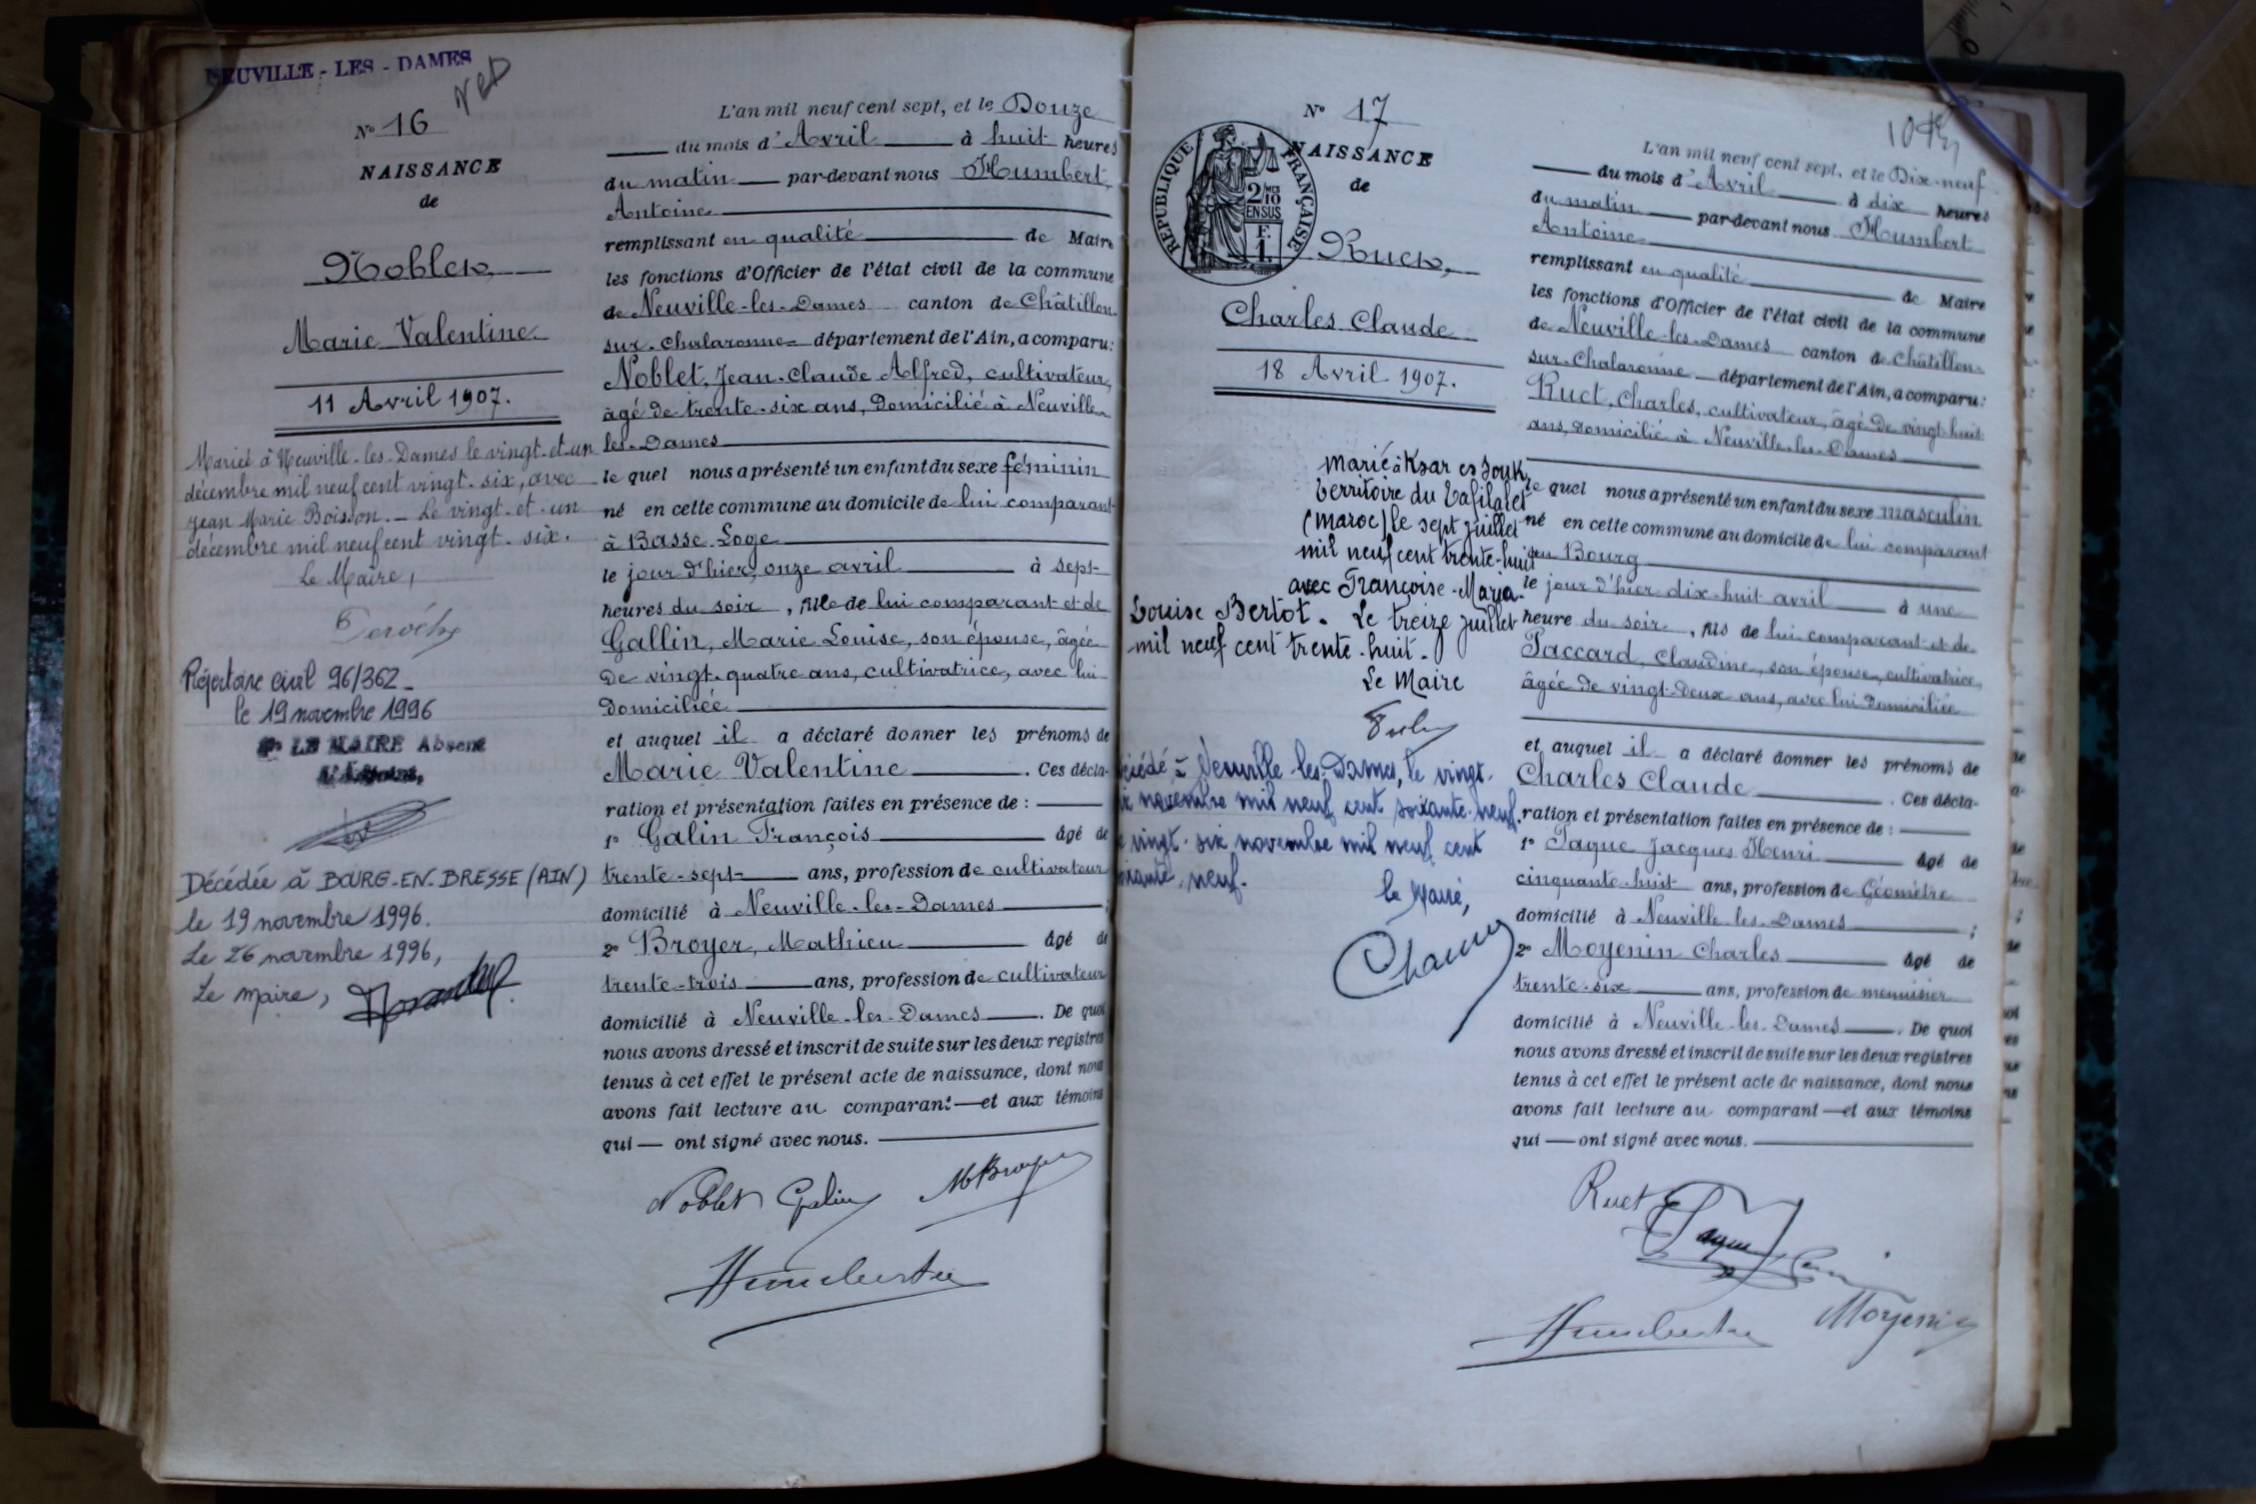 NEUVILLE - LES - DAMES
N° 16
NAISSANCE
de
Noblet,
Marie Valentine
11 Avril 1907.
Mariée à Neuville-les-Dames le vingt-et-un
décembre mil neuf cent vingt-six, avec
Jean Marie Boisson. - Le vingt-et-un
décembre mil neuf cent vingt-six.
Le Maire,
Répertoire civil 96/362_
le 19 novembre 1996
LE MAIRE Absent
Décédée à BOURG-EN-BRESSE (AIN)
le 19 novembre 1996.
Le 26 novembre 1996,
Le maire,
L'an mil neuf cent sept, et le Douze
du mois d'Avril à huit heures
du matin par-devant nous Humbert,
Antoine
remplissant en qualité de Maire
les fonctions d'Officier de l'état civil de la commune
de Neuville-les-Dames canton de Châtillon
sur-Chalaronne département de l'Ain, a comparu:
Noblet, Jean-Claude Alfred, cultivateur,
âgé de trente-six ans, domicilié à Neuville
les-Dames
le quel nous a présenté un enfant du sexe féminin
né en cette commune au domicile de lui comparant
à Basse Loge
le jour d'hier, onze avril à sept
heures du soir, fille de lui comparant et de
Gallin, Marie Louise, son épouse, âgée
de vingt-quatre ans, cultivatrice, avec lui
domiciliée
et auquel il a déclaré donner les prénoms de
Marie Valentine. Ces décla-
ration et présentation faites en présence de :
1° Galin François âgé de
trente-sept ans, profession de cultivateur
domicilié à Neuville-les-Dames ;
2° Broyer, Mathieu âgé de
trente-trois ans, profession de cultivateur
domicilié à Neuville-les-Dames. De quoi
nous avons dressé et inscrit de suite sur les deux registres
tenus à cet effet le présent acte de naissance, dont nous
avons fait lecture au comparant et aux témoins
qui ont signé avec nous.
Noblet Galin M Broyer
N° 17
NAISSANCE
de
RÉPUBLIQUE FRANÇAISE
2/10
EN SUS
F.
1.
Ruet,
Charles Claude
18 Avril 1907.
Marié à Ksar es Souk,
territoire du Tafilalet
(Maroc) le sept juillet
mil neuf cent trente-huit
avec Françoise-Maria-
Louise Bertot. Le treize juillet
mil neuf cent trente-huit.
Le Maire
Neuville-les-Dames, le vingt-
novembre mil neuf cent soixante-neuf.
vingt-six novembre mil neuf cent
neuf.
le Maire,
L'an mil neuf cent sept, et le Dix-neuf
du mois d'Avril à dix heures
du matin par-devant nous Humbert
Antoine
remplissant en qualité de Maire
les fonctions d'Officier de l'état civil de la commune
de Neuville-les-Dames canton de Châtillon
sur-Chalaronne département de l'Ain, a comparu:
Ruet, Charles, cultivateur, âgé de vingt-huit
ans, domicilié à Neuville-les-Dames
le quel nous a présenté un enfant du sexe masculin
né en cette commune au domicile de lui comparant
au Bourg
le jour d'hier dix-huit avril à une
heure du soir, fils de lui comparant et de
Paccard, Claudine, son épouse, cultivatrice,
âgée de vingt-deux ans, avec lui domiciliée
et auquel il a déclaré donner les prénoms de
Charles Claude. Ces décla-
ration et présentation faites en présence de :
1° Jacques Henri âgé de
cinquante-huit ans, profession de Géomètre
domicilié à Neuville-les-Dames ;
2° Moyenin Charles âgé de
trente-six ans, profession de menuisier
domicilié à Neuville-les-Dames. De quoi
nous avons dressé et inscrit de suite sur les deux registres
tenus à cet effet le présent acte de naissance, dont nous
avons fait lecture au comparant et aux témoins
qui ont signé avec nous.
Ruet
Moyenin